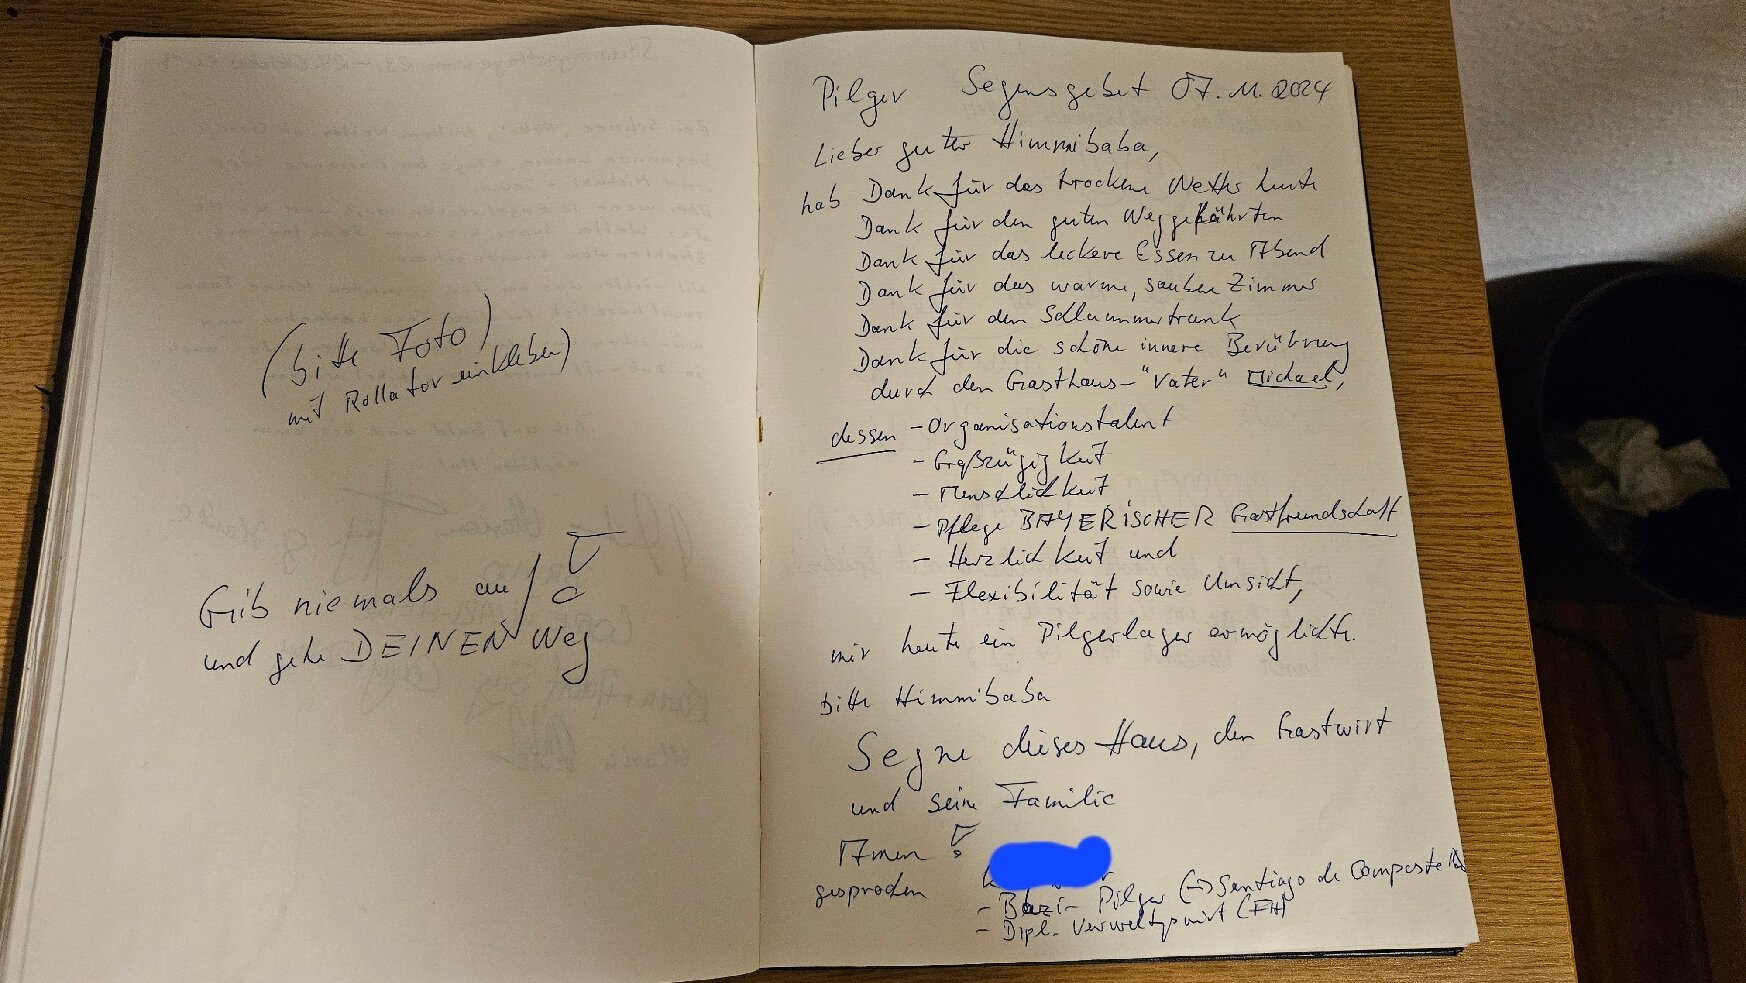 (bitte Foto)
mit Rollator einkleben)
Gib niemals auf!
und gehe DEINEN Weg
Pilger Segensgebet 07.11.2024
Lieber guter Himmibaba,
hab Dank für das trockene Wetter heute
Dank für den guten Weggefährten
Dank für das leckere Essen zu Abend
Dank für das warme, saubere Zimmer
Dank für den Schlummertrunk
Dank für die schöne innere Berührung
durch den Gasthaus-"Vater" Michael,
dessen - Organisationstalent
- Großzügigkeit
- Menschlichkeit
- Pflege BAYERISCHER Gastfreundschaft
- Herzlichkeit und
- Flexibilität sowie Umsicht,
mir heute ein Pilgerlager ermöglichte.
Bitte Himmibaba
Segne dieses Haus, den Gastwirt
und seine Familie
Amen!
gesprochen
- Bazi- Pilger (→ Santiago de Compostela
- Dipl. Verweltgswirt (FH)